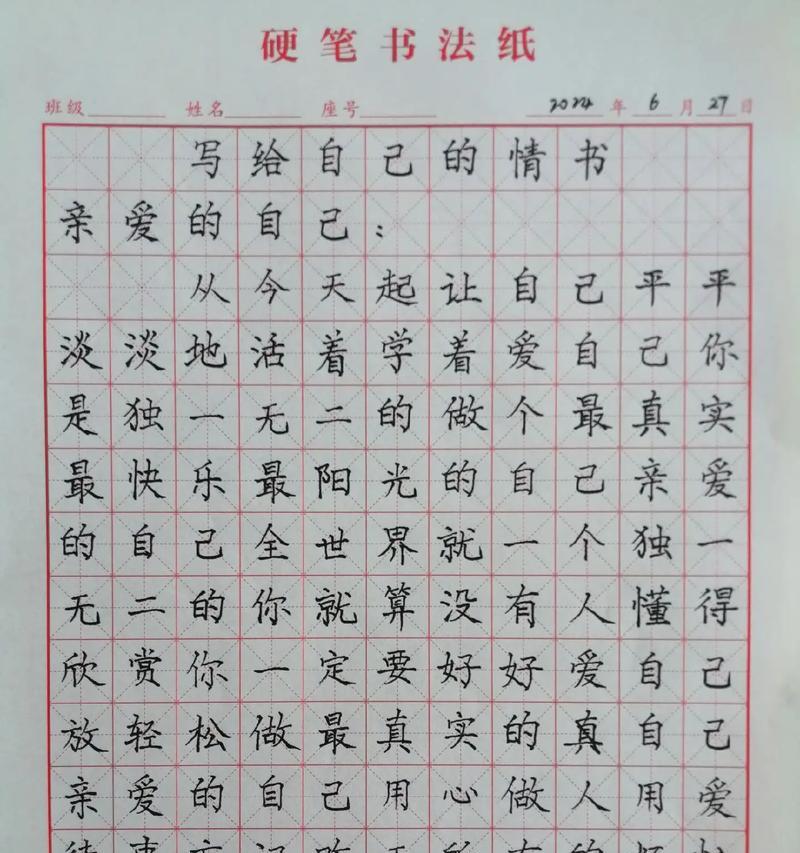 硬笔书法纸
班级 姓名 座号 2024年6月27日
写给自己的情书
亲爱的自己：
从今天起让自己平平
淡淡地活着学着爱自己你
是独一无二的做个最真实
最快乐最阳光的自己亲爱
的自己全世界就一个独一
无二的你就算没有人懂得
欣赏你一定要好好爱自己
放轻松做最真实的真自己
亲爱的自己用心做人用爱